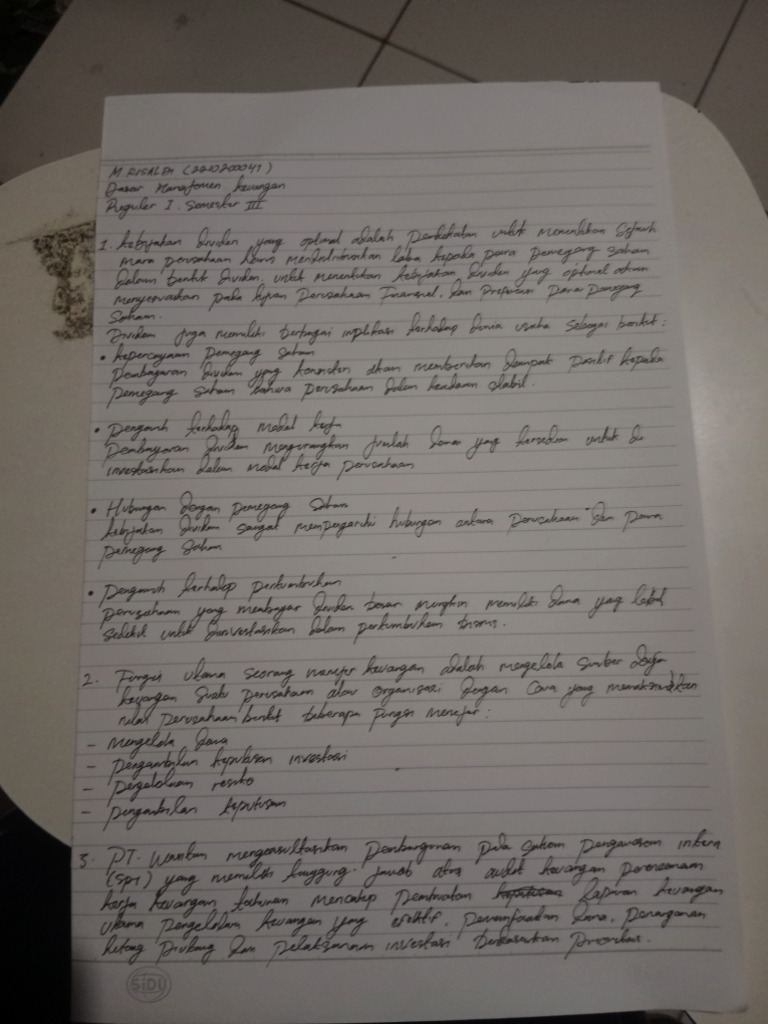 M RISALDI (2210200041)
Dasar Manajemen keuangan
Reguler I. Semester III
1. kebijakan dividen yang optimal adalah pendekatan untuk menentukan Sejauh
mana perusahaan harus mendistribusikan laba kepada para pemegang saham
dalam bentuk dividen. untuk menentukan kebijakan dividen yang optimal
menyesuaikan pada perusahaan Finansial, dan Preferensi para pemegang
Saham.
Dividen juga memiliki berbagai implikasi terhadap dunia usaha sebagai berikut:
• kepercayaan pemegang saham
pembayaran dividen yang konsisten akan memberikan dampak positif kepada
pemegang saham bahwa perusahaan dalam keadaan stabil.
• pengaruh terhadap modal kerja
Pembayaran dividen mengurangkan jumlah dana yang tersedia untuk di
investasikan dalam modal kerja perusahaan
• Hubungan dengan pemegang saham
kebijakan dividen sangat mempengaruhi hubungan antara perusahaan dan para
pemegang saham
• pengaruh terhadap pertumbuhan
perusahaan yang membayar dividen besar mungkin memiliki dana yang lebih
sedikit untuk diinvestasikan dalam pertumbuhan bisnis.
2. Fungsi utama seorang manajer keuangan adalah mengelola sumber daya
keuangan suatu perusahaan atau organisasi dengan cara yang memaksimalkan
nilai perusahaan berikut beberapa fungsi manajer:
– mengelola dana
– pengambilan keputusan investasi
– pengelolaan resiko
– pengambilan keputusan
3. PT. mengonsultasikan pembangunan pada sistem pengawasan intern
(SPI) yang memiliki tanggung jawab atas audit keuangan perencanaan
kerja keuangan, mencakup pembuatan laporan keuangan
utama pengelolaan keuangan yang efektif, pemanfaatan dana, penanganan
hutang piutang dan pelaksanaan investasi berdasarkan prioritas.
SiDU